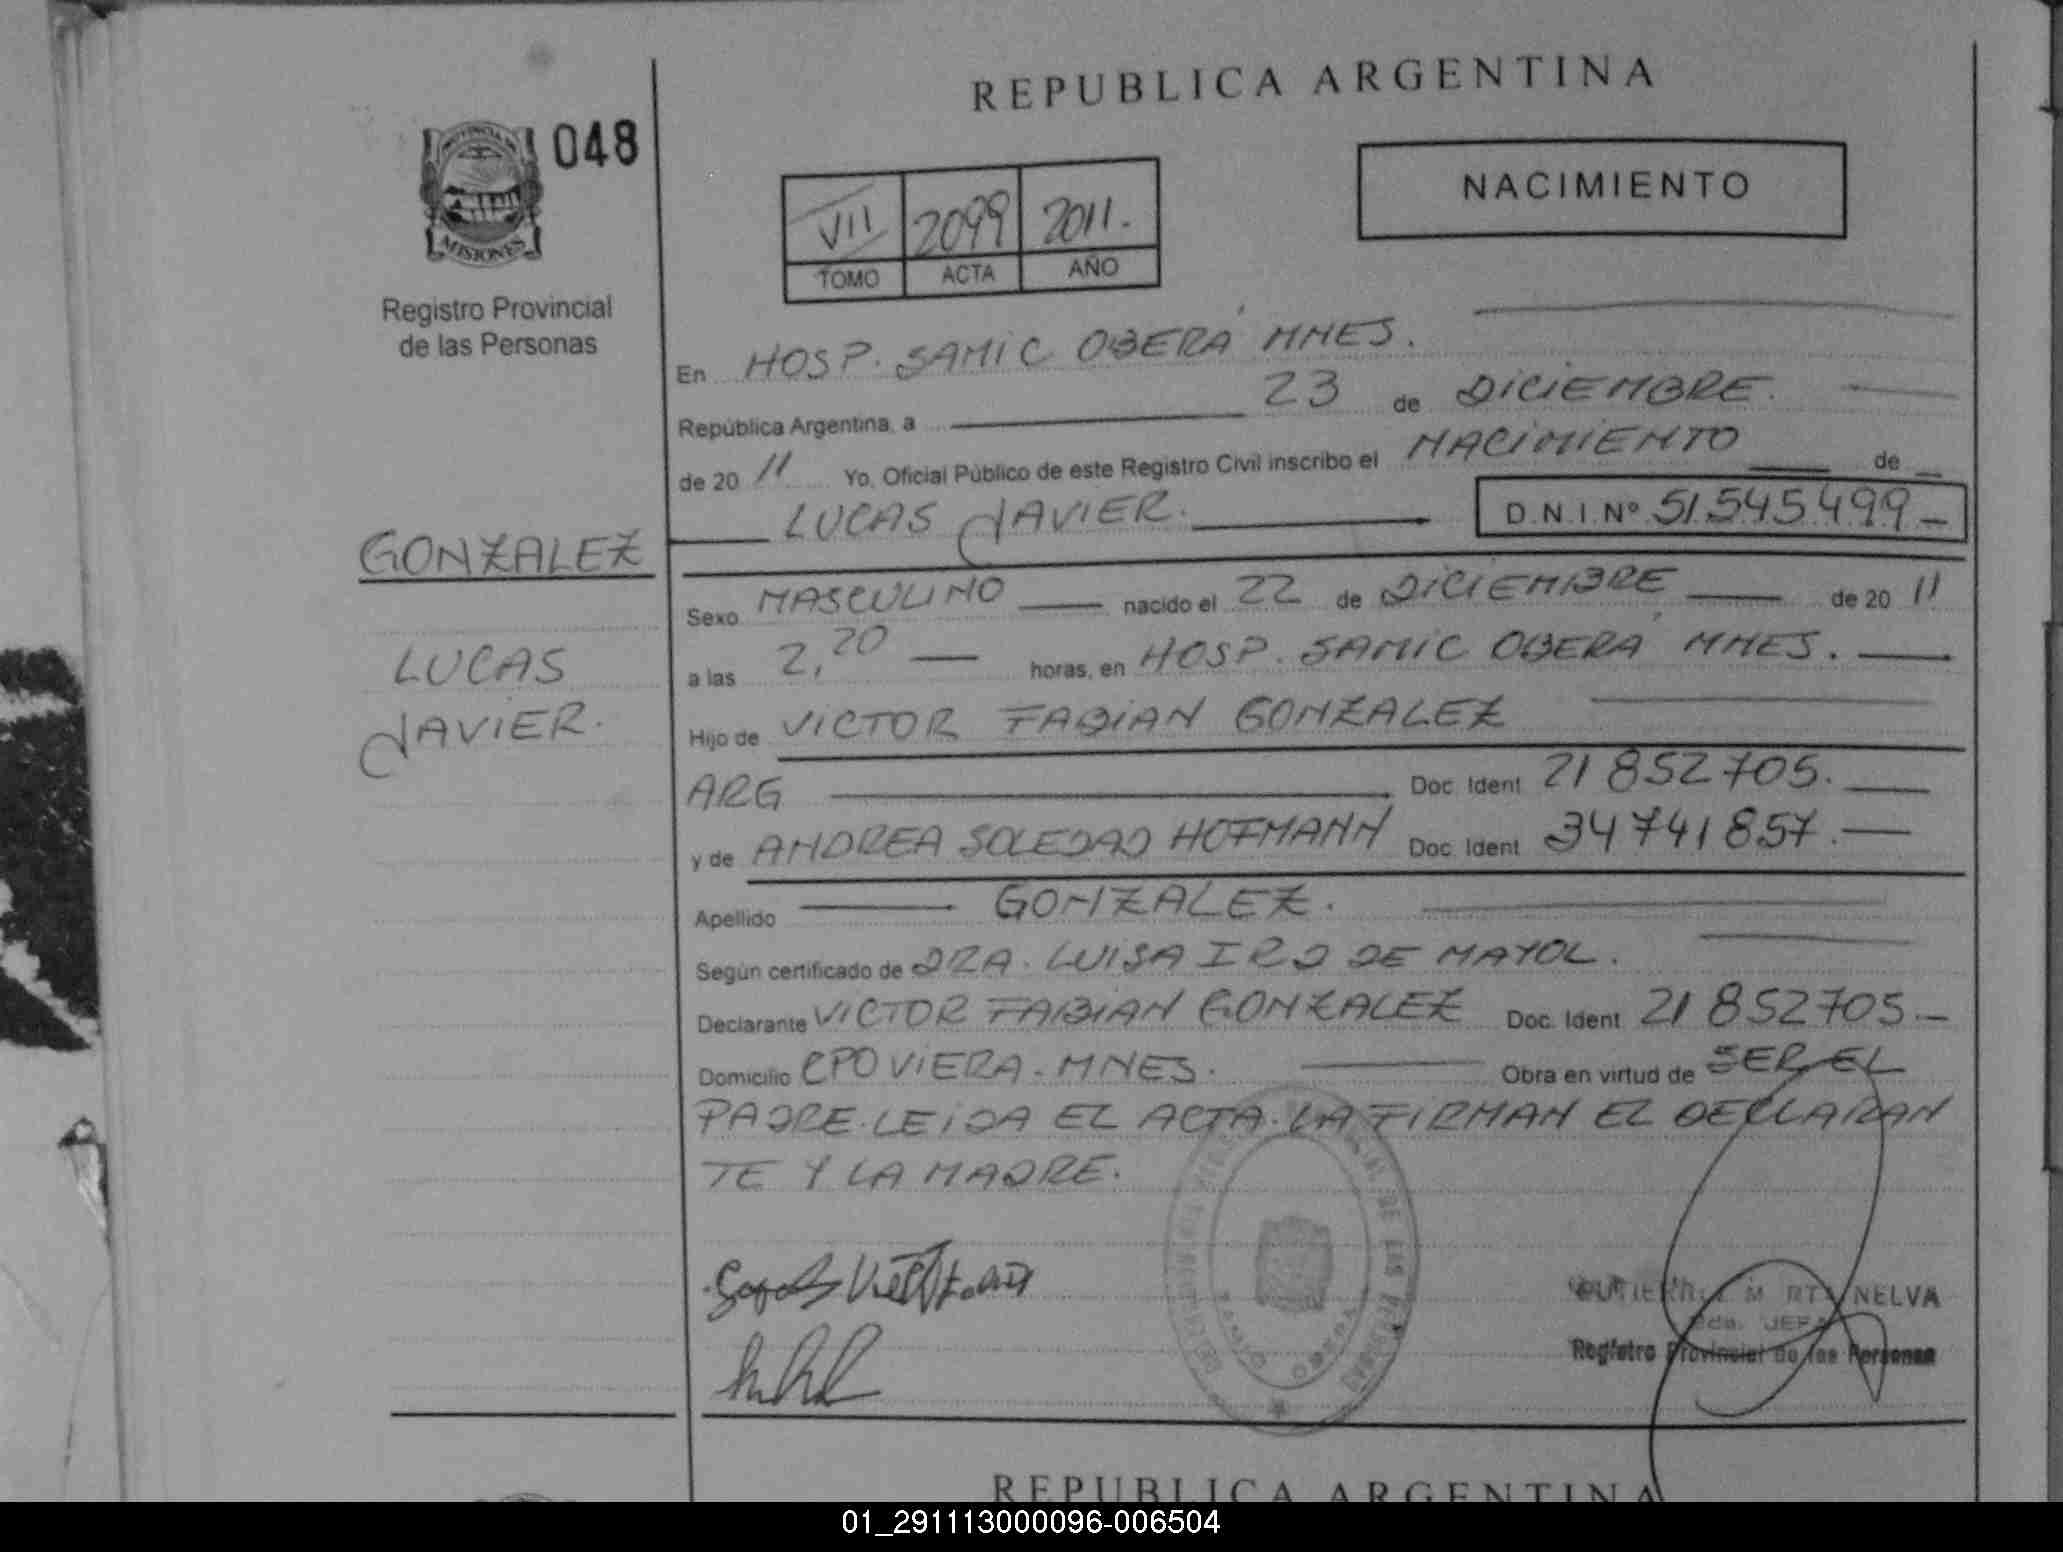 REPUBLICA ARGENTINA
PROVINCIA DE
MISIONES
048
Registro Provincial
de las Personas
NACIMIENTO
VII 2099 2011.
TOMO ACTA AÑO
En HOSP. SAMIC OBERÁ MNES.
República Argentina, a 23 de DICIEMBRE.
de 20 11 Yo, Oficial Público de este Registro Civil inscribo el NACIMIENTO de
LUCAS JAVIER. D.N.I. Nº 51.545.499
GONZALEZ
LUCAS
JAVIER.
Sexo MASCULINO nacido el 22 de DICIEMBRE de 20 11
a las 2,20 horas, en HOSP. SAMIC OBERÁ MNES.
Hijo de VICTOR FABIAN GONZALEZ
ARG Doc. Ident 21 852705.
y de ANDREA SOLEDAD HOFMANN Doc. Ident 34741857.
Apellido GONZALEZ.
Según certificado de DRA. LUISA IRD DE MAYOL.
Declarante VICTOR FABIAN GONZALEZ Doc. Ident 21 852705
Domicilio CPO VIERA. MNES. Obra en virtud de SER EL
PADRE. LEIDA EL ACTA. LA FIRMAN EL DECLARAN
TE Y LA MADRE.
NELVA
JEFA
Registro Provincial de las Personas
REPUBLICA ARGENTINA
01_291113000096-006504